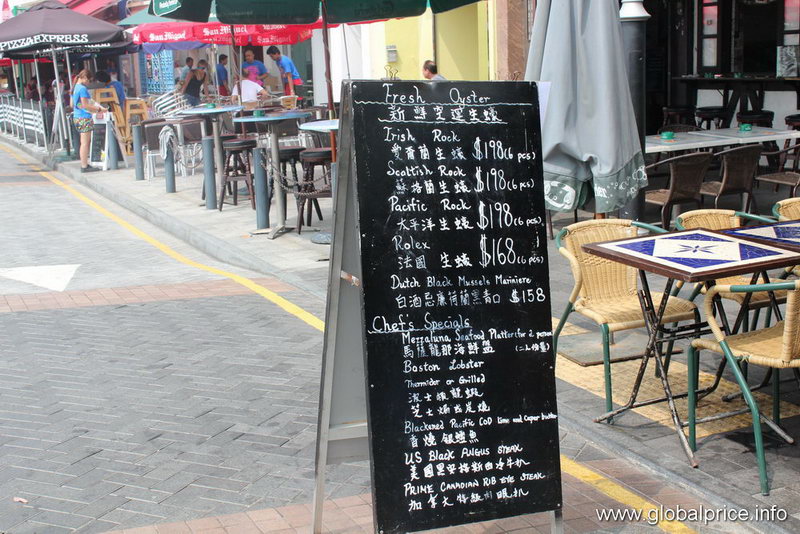 PIZZA EXPRESS
San Miguel
San Miguel
San Miguel
Fresh Oyster
新鮮空運生蠔
Irish Rock
愛爾蘭生蠔 $198 (6 pcs)
Scottish Rock
蘇格蘭生蠔 $198 (6 pcs)
Pacific Rock
太平洋生蠔 $198 (6 pcs)
Rolex
法國生蠔 $168 (6 pcs)
Dutch Black Mussels Mariniere
白酒忌廉荷蘭黑青口 $158
Chef's Specials
Mezzaluna Seafood Platter (for 2 person
海鮮盤 (二人份量)
Boston Lobster
Thermidor or Grilled
波士頓龍蝦
芝士焗或炭燒
Blackened Pacific COD lime and Caper butter
香燒銀鱈魚
US Black Angus STEAK
美國黑安格斯西冷牛扒
PRIME CANADIAN RIB EYE STEAK
加拿大特級肉眼扒
www.globalprice.info